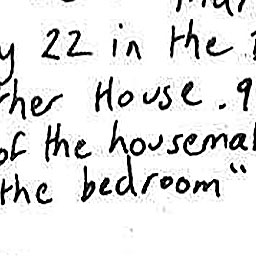 y 22 in the
ther House. 9
of the housema
the bedroom"